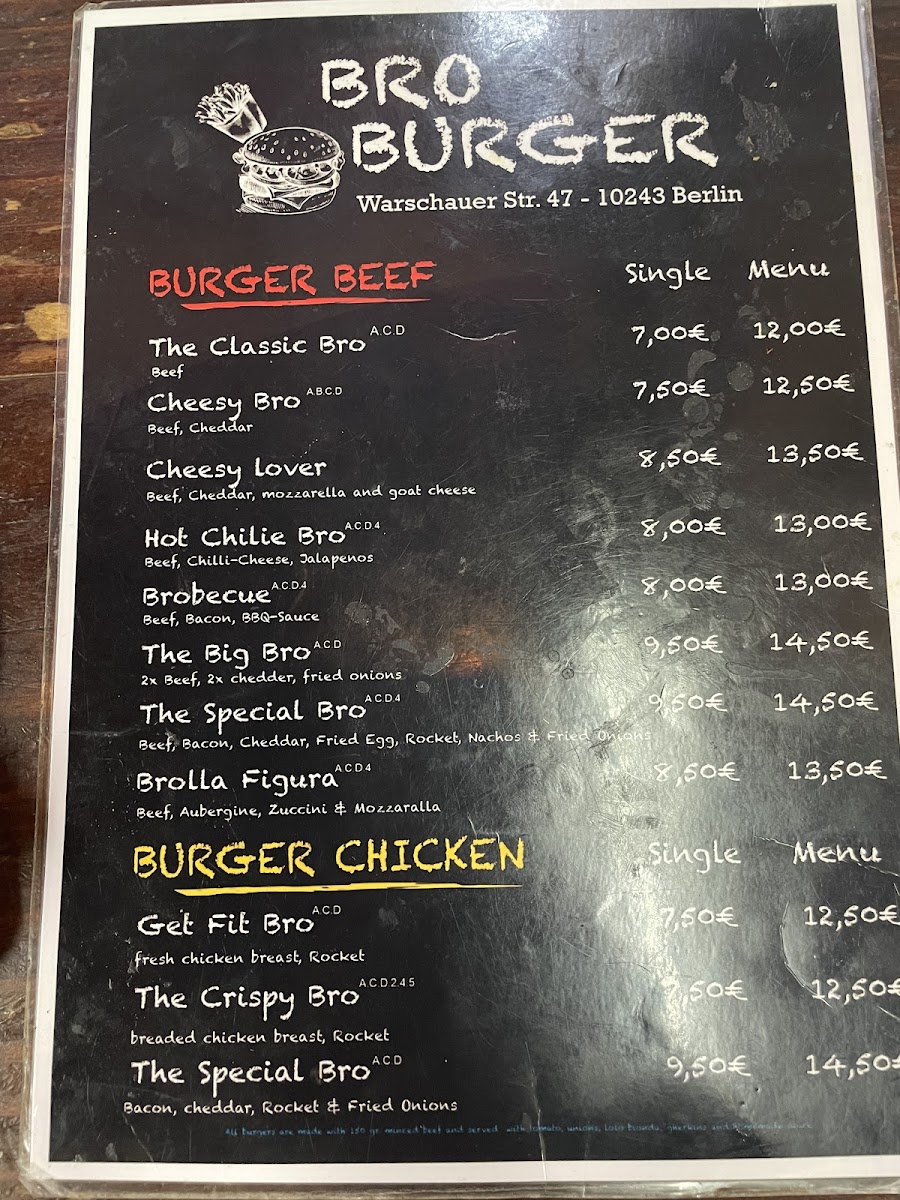 BRO
BURGER
Warschauer Str. 47 - 10243 Berlin
BURGER BEEF Single Menu
The Classic Bro A.C.D 7,00€ 12,00€
Beef
Cheesy Bro A.B.C.D 7,50€ 12,50€
Beef, Cheddar
Cheesy lover 8,50€ 13,50€
Beef, Cheddar, mozzarella and goat cheese
Hot Chilie Bro A.C.D.4 8,00€ 13,00€
Beef, Chilli-Cheese, Jalapenos
Brobecue A.C.D.4 8,00€ 13,00€
Beef, Bacon, BBQ-Sauce
The Big Bro A.C.D 9,50€ 14,50€
2x Beef, 2x chedder, fried onions
The Special Bro A.C.D.4 9,50€ 14,50€
Beef, Bacon, Cheddar, Fried Egg, Rocket, Nachos & Fried Onions
Brolla Figura A.C.D.4 8,50€ 13,50€
Beef, Aubergine, Zuccini & Mozzaralla
BURGER CHICKEN Single Menu
Get Fit Bro A.C.D 7,50€ 12,50€
fresh chicken breast, Rocket
The Crispy Bro A.C.D.2.4.5 7,50€ 12,50€
breaded chicken breast, Rocket
The Special Bro A.C.D 9,50€ 14,50€
Bacon, cheddar, Rocket & Fried Onions
All burgers are made with 150 gr. minced beef and served with tomato, onions, gherkins and